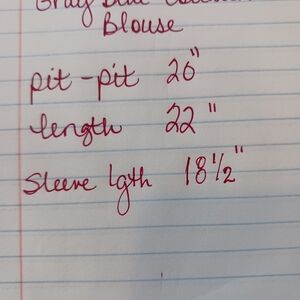 Gray Blue
Blouse
pit-pit 20"
length 22"
Sleeve lgth 18½"